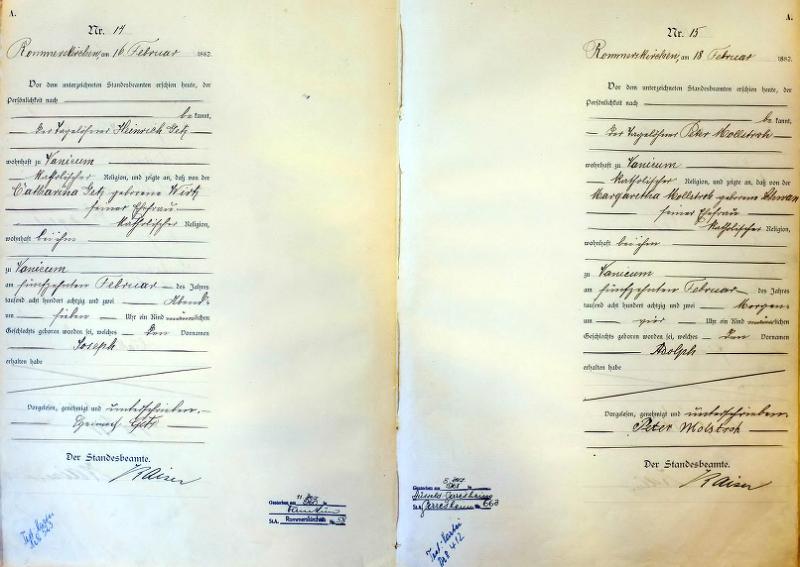 A.
Nr. 14
Rommerskirchen, am 16 Februar 1882.
Vor dem unterzeichneten Standesbeamten erschien heute, der
Persönlichkeit nach
be kannt,
der Tagelöhner Heinrich Getz
wohnhaft zu Vanicum
katholischer Religion, und zeigte an, daß von der
Catharina Getz geborene Wirtz
seiner Ehefrau
katholischer Religion,
wohnhaft bei ihm
zu Vanicum
am fünfzehnten Februar des Jahres
tausend acht hundert achtzig und zwei Abends
um sieben Uhr ein Kind männlichen
Geschlechts geboren worden sei, welches den Vornamen
Joseph
erhalten habe
Vorgelesen, genehmigt und unterschrieben
Heinrich Getz
Der Standesbeamte.
Kaiser
Gestorben am
St.A. Rommerskirchen
A.
Nr. 15
Rommerskirchen, am 18 Februar 1882.
Vor dem unterzeichneten Standesbeamten erschien heute, der
Persönlichkeit nach
be kannt,
der Tagelöhner Peter Mollstroh
wohnhaft zu Vanicum
katholischer Religion, und zeigte an, daß von der
Margaretha Mollstroh geborene
seiner Ehefrau
katholischer Religion,
wohnhaft bei ihm
zu Vanicum
am fünfzehnten Februar des Jahres
tausend acht hundert achtzig und zwei Morgens
um vier Uhr ein Kind männlichen
Geschlechts geboren worden sei, welches den Vornamen
Adolph
erhalten habe
Vorgelesen, genehmigt und unterschrieben
Peter Molstroh
Der Standesbeamte.
Kaiser
Gestorben am
St.A. Gerresheim